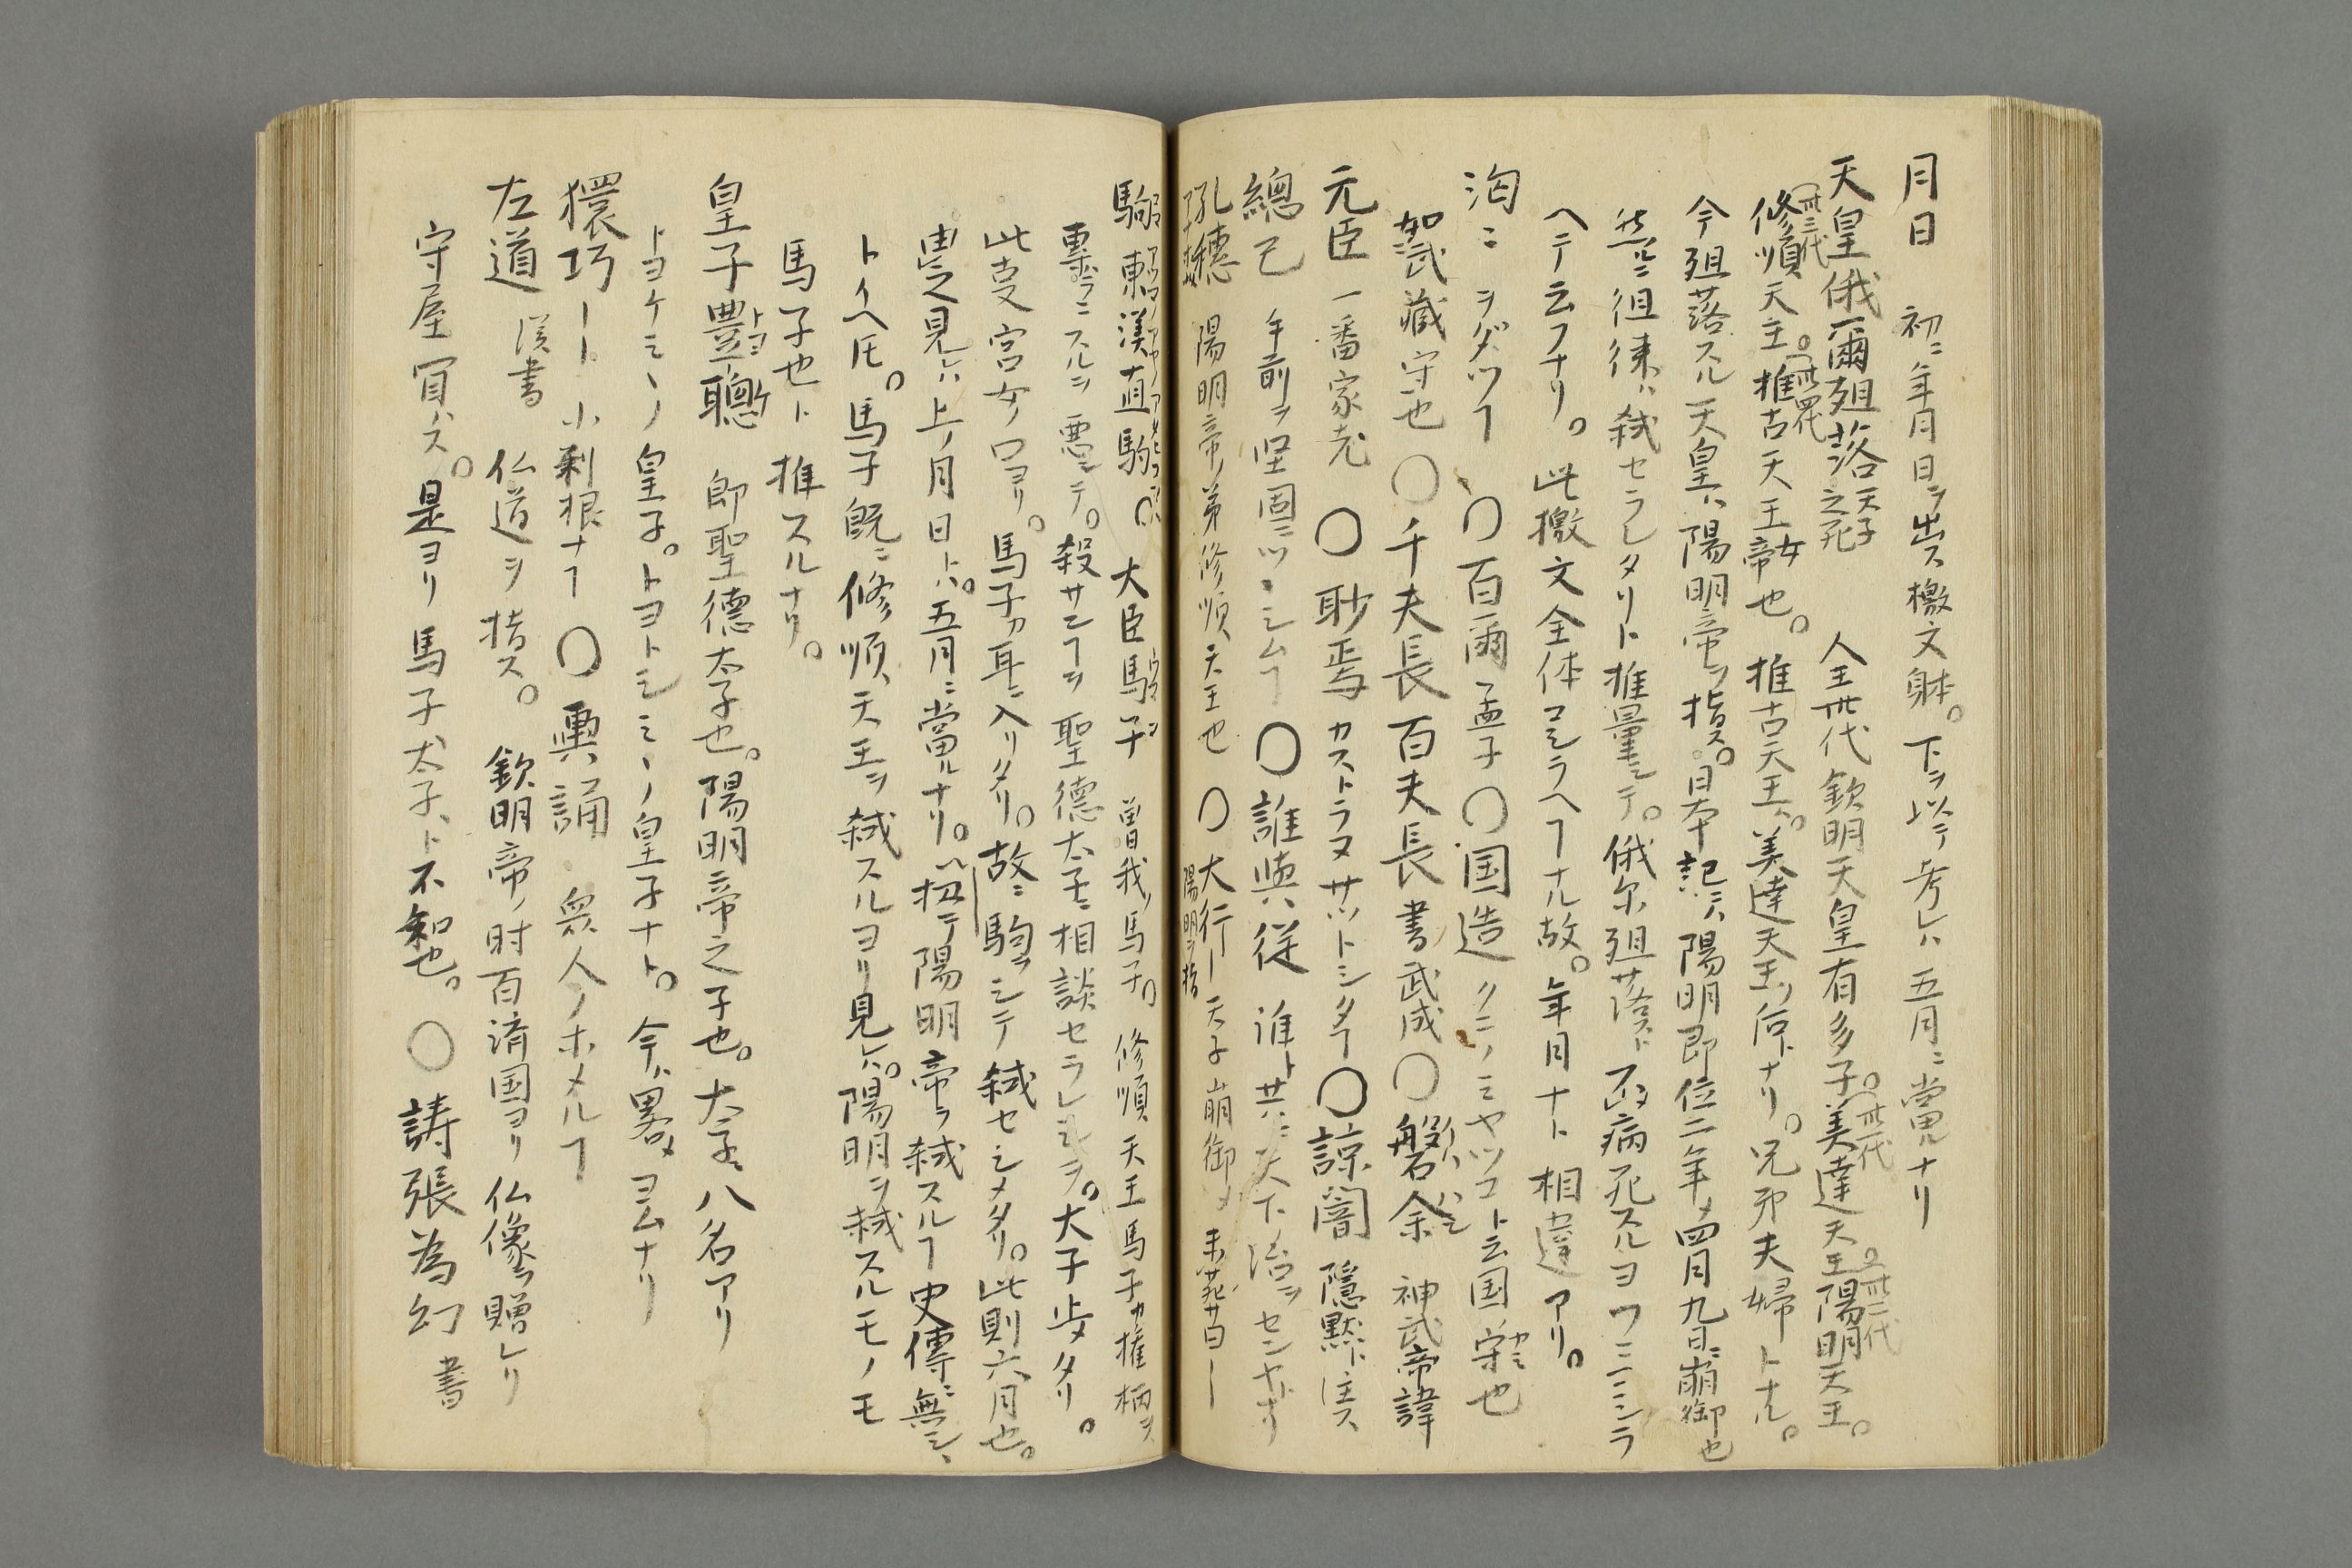 月日 初ニ年月日ヲ出ス檄文躰。下ヲ以テ考レハ五月ニ當ルナリ
天皇俄爾殂落 天子之死 人王卅代欽明天皇有多子。卅一代美達天王。卅二代陽明天王。
卅三代修順天主。卅四代推古天王女帝也。推古天王ハ。美達天王ノ后トナリ。兄弟夫婦トナル。
今殂落スル天皇ハ陽明帝ヲ指ス。日本記ニハ陽明即位二年メ四月九日ニ崩御也
然ルニ徂徠ハ弑セラレタリト推量シテ。俄尔殂落ト
ヘテ云フナリ。此檄文全体コシラヘヿナル故。年月ナト相違アリ。
洶ニ ヲダツヿ 〇百爾 孟子 〇国造 クニノミヤツコト云国守也
如武藏守也 〇千夫長百夫長 書武成 〇磐余 神武帝諱
元臣 一番家老 〇眇焉 カストラヌサツトシタヿ 〇諒闇 隠黙ト注ス
總己 手前ヲ堅固ニツヽシムヿ 〇誰與從 誰ト共ニ天下ノ治ヲセンヤトナリ
孔穗 陽明帝ノ弟修順天王也 〇大行ー 天子崩御メ未葬サ曰ー 陽明ヲ指
駒 東漢直駒 大臣馬子 曽我ノ馬子。修順天王馬子カ權柄ヲ
專ラニスルヲ悪シテ。殺サンヿヲ聖德太子ニ相談セラレシヲ。大子止メタリ。
此叓宮女ノ口ヨリ。馬子カ耳ニ入リタリ。故ニ駒ヲシテ弑セシメタリ。此則六月也。
由之見レハ上ノ月日トハ。五月ニ當ルナリ。扨テ陽明帝ヲ弑スルヿ史傳ニ無シ
トイヘ𪜈。馬子既ニ修順天王ヲ弑スルヨリ見レハ。陽明ヲ弑スルモノモ
馬子也ト推スルナリ。
皇子豐聰 即聖德太子也。陽明帝之子也。大子ニ八名アリ
トヨケミヽノ皇子。トヨトシミヽノ皇子ナト。今ハ畧メヨムナリ
獧巧ーー 小利根ナヿ 〇輿誦 衆人ノホメルヿ
左道 漢書 仏道ヲ指ス。欽明帝ノ时百済国ヨリ仏像ヲ贈レリ
守屋買ハス。是ヨリ馬子太子ト不和也。〇譸張為幻 書